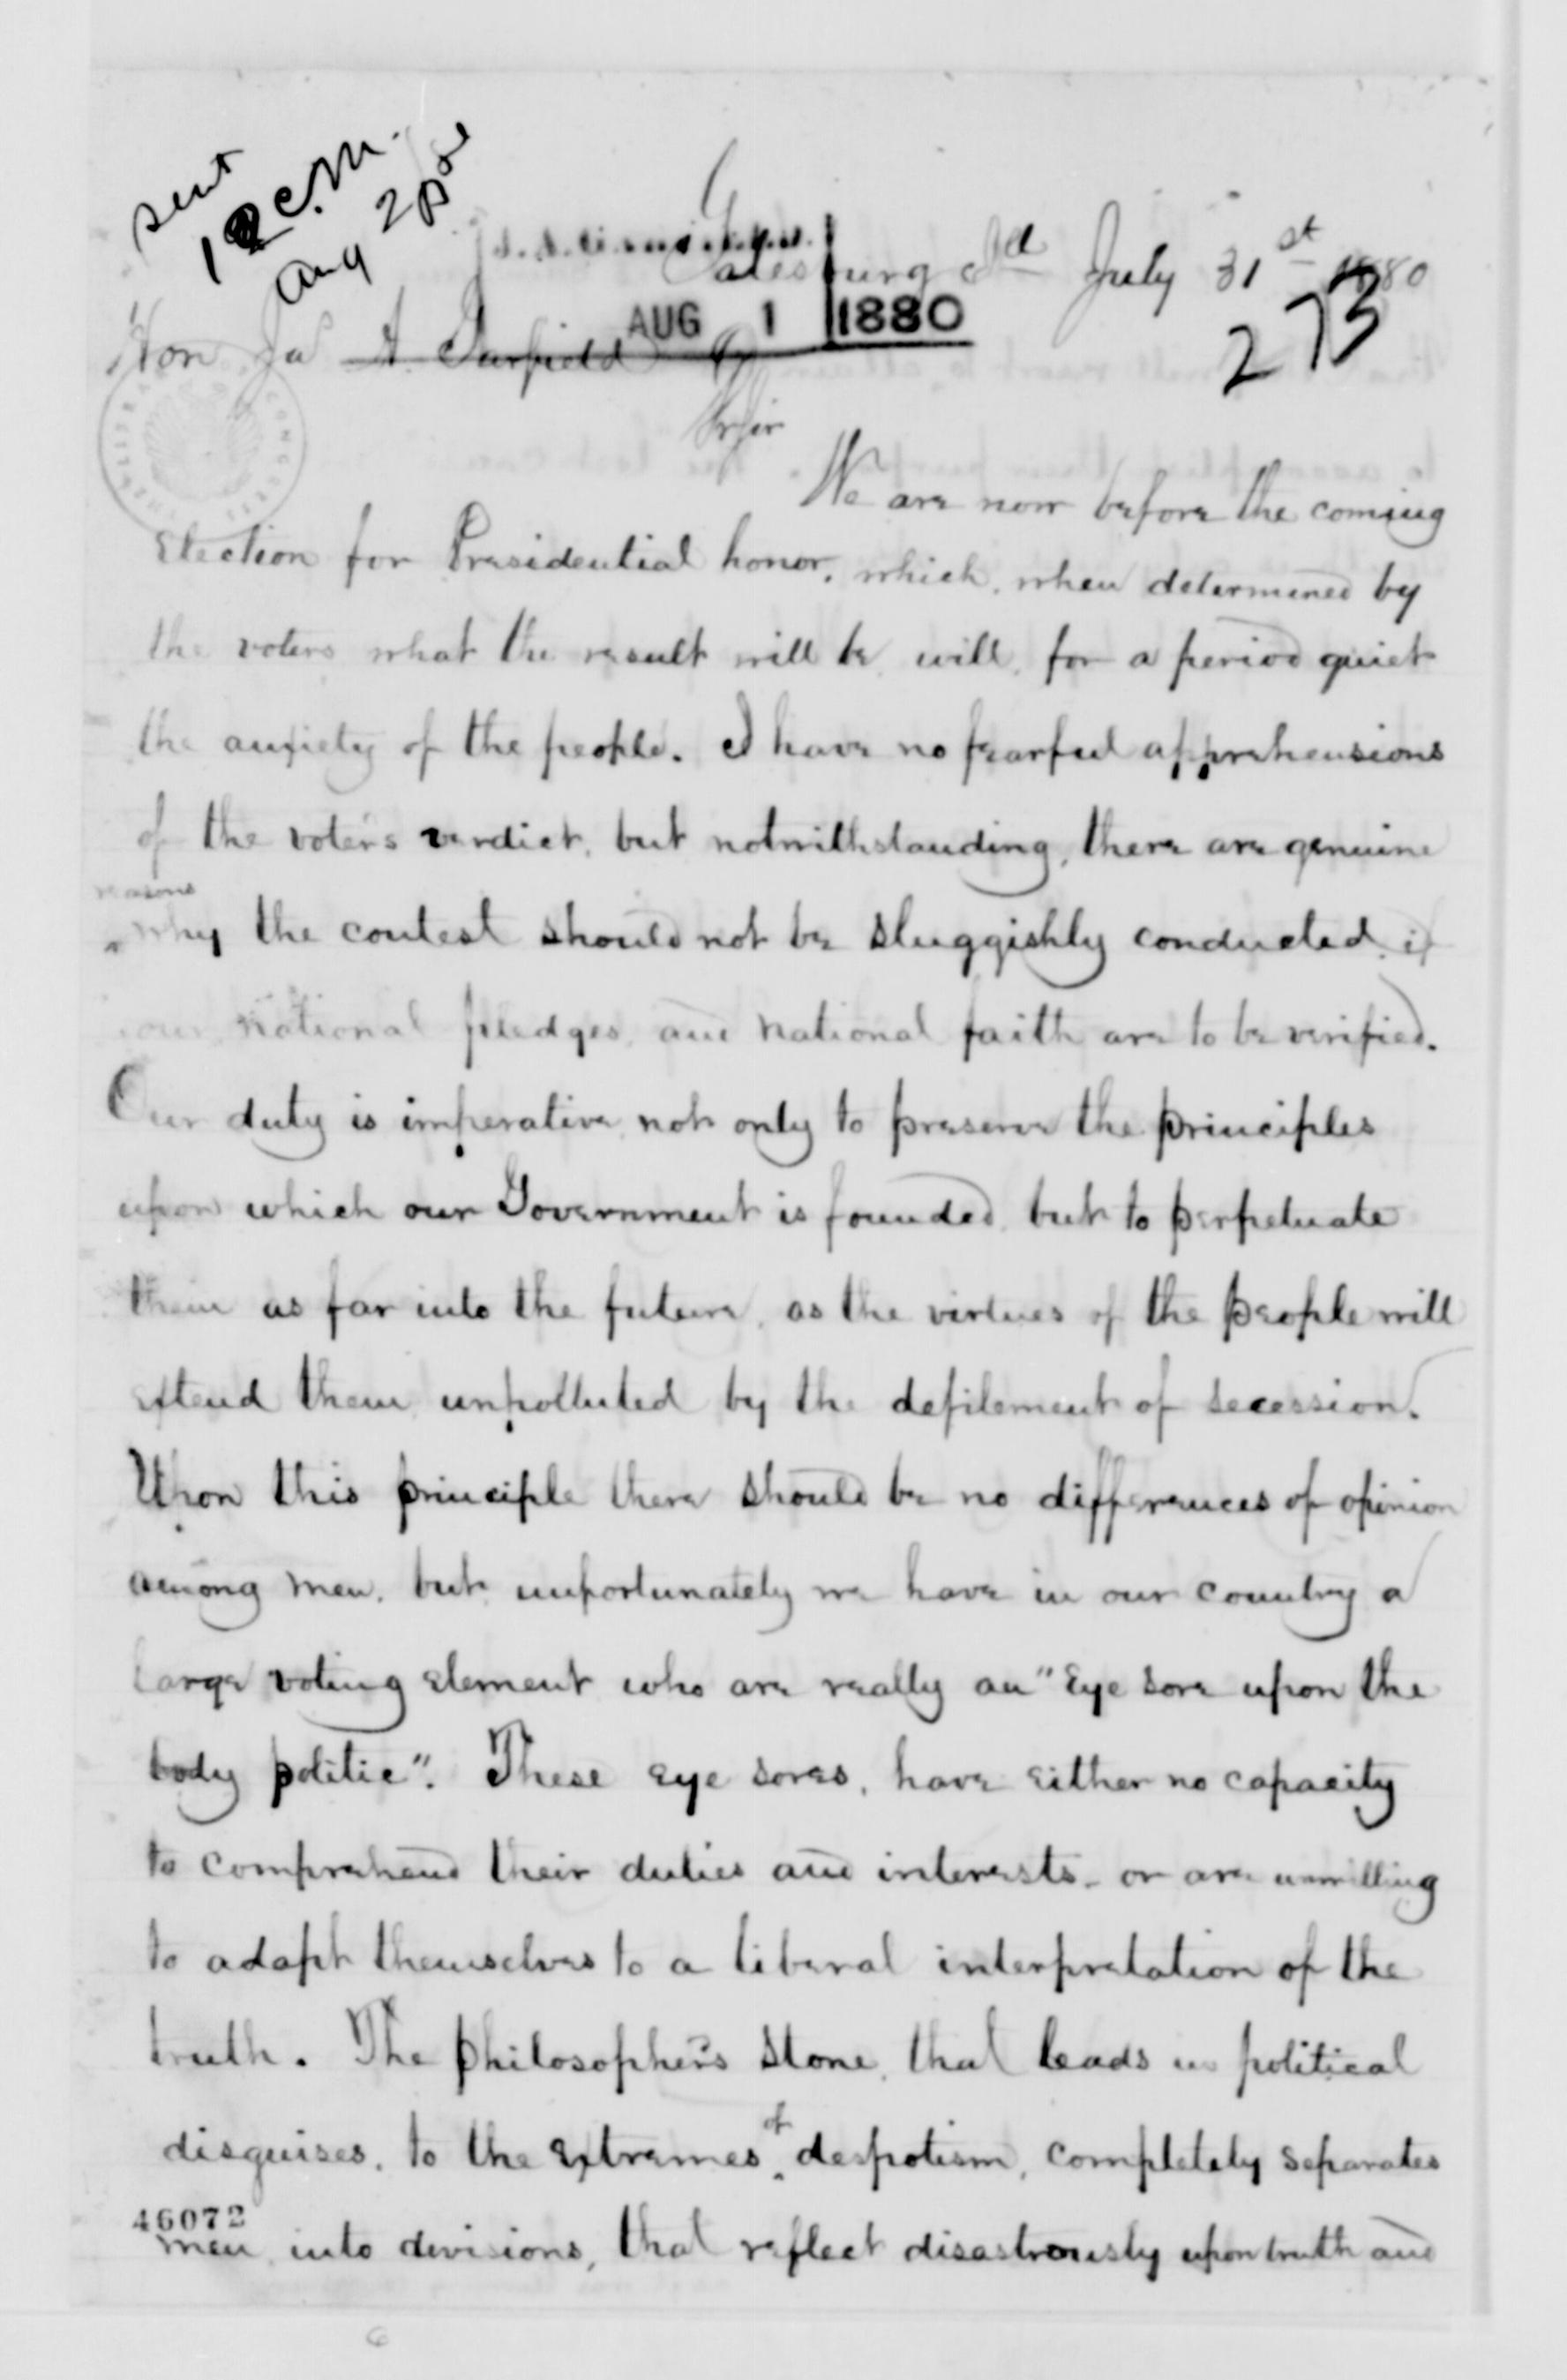 sent
12 C.M.
Aug 2
Galesburg Ill July 31st 1880
AUG 1 1880
273
Hon Jas A Garfield
Dr Sir
We are now before the coming
Election for Presidential honor, which, when determined by
the voters what the result will be, will, for a period quiet
the anxiety of the people. I have no fearful apprehensions
of the voter's verdict, but notwithstanding, there are genuine
reasons
why the contest should not be sluggishly conducted, if
our national pledges, and national faith are to be verified.
Our duty is imperative, not only to preserve the principles
upon which our Government is founded, but to perpetuate
them as far into the future, as the virtues of the people will
extend them, unpolluted by the defilement of secession.
Upon this principle there should be no differences of opinion
among men, but unfortunately we have in our country a
large voting element who are really an "Eye sore upon the
body politic". These eye sores, have either no capacity
to comprehend their duties and interests, or are unwilling
to adapt themselves to a liberal interpretation of the
truth. The philosopher's stone, that leads in political
disguises, to the extremes of despotism, completely separates
46072
men, into divisions, that reflect disastrously upon truth and